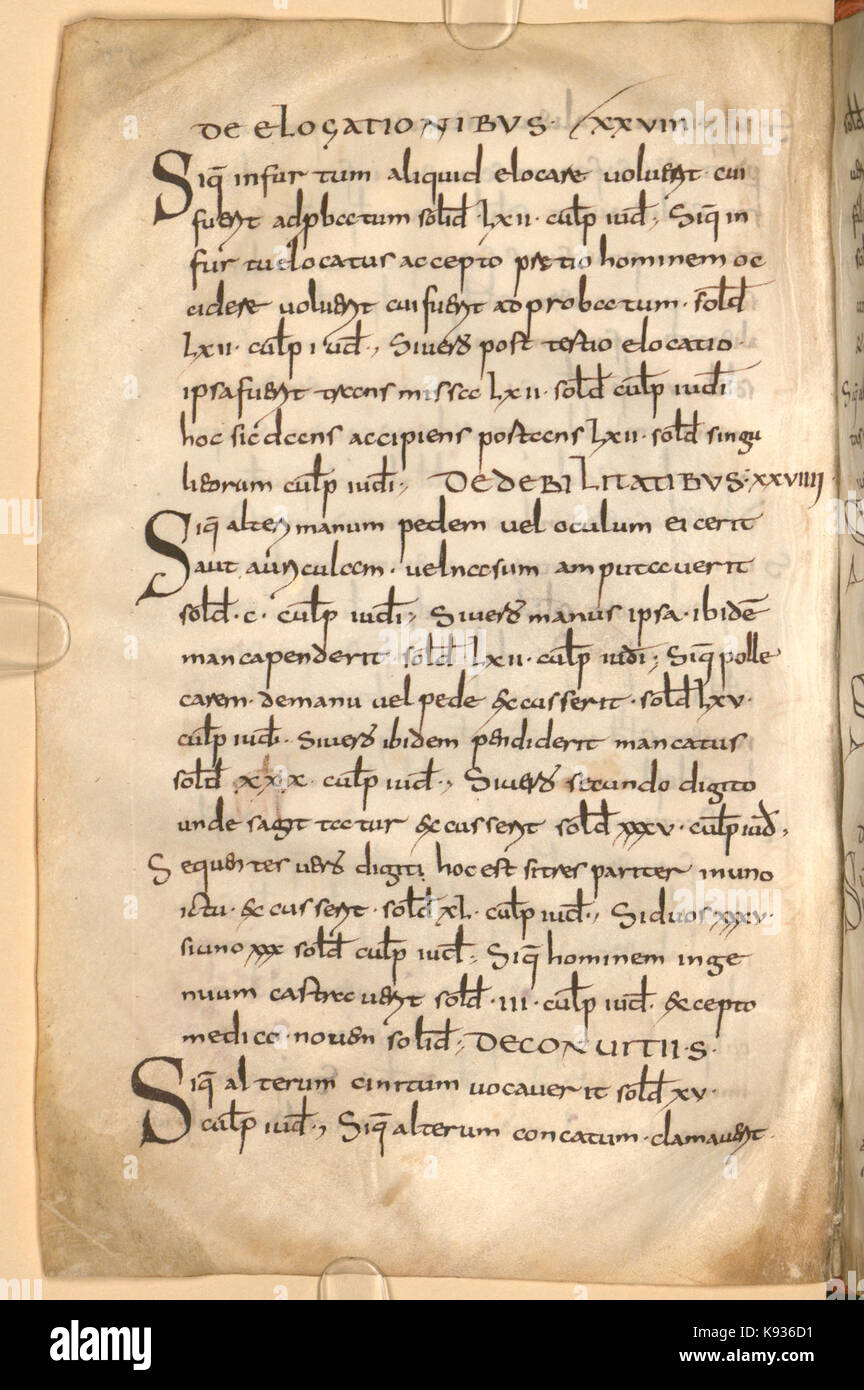 DE ELOCATIONIBUS · XXVIII ·
Siq̄ in furtum aliquid elocare voluerit cui
fuerit adpbatum solid · lxii · culp iud ; Siq̄ in
furtu elocatus accepto pretio hominem oc
cidere voluerit cui fuerit adprobatum · sold
lxii · culp iud ; Si uero post testio elocatio ·
ipsa fuerit trans missa lxii · sold culp iudi
hoc sic dans accipiens portans lxii · sold singu
liorum culp iudi ; DE DEBILITATIBUS · XXVIIII
Siq̄ alter manum pedem vel oculum eicerit
aut auriculam · vel nasum amputaverit
sold · c · culp iudi ; Si uero manus ipsa · ibidē
manca penderit sold lxii · culp iudi ; Siq̄ polle
carem · de manu vel pede excusserit · sold lxv ·
culp iud · Si uero ibidem pendiderit mancatus
sold xxx · culp iud ; Si uero secundo digito
unde sagittatur excusserit sold xxxv · culp iud ;
Sequentes uero digiti hoc est si tres pariter in uno
ictu · excusserit · sold xl · culp iud ; Si duos xxxv ·
si uno xxx sold culp iud ; Siq̄ hominem inge
nuum castraverit sold · iii · culp iud · excepto
medica · noven solid ; DE CONVITIIS ·
Siq̄ alterum cinitum vocaverit sold xv ·
culp iud ; Siq̄ alterum concatum · clamaverit
alamy
a
alamy stock photo
K936D1
www.alamy.com